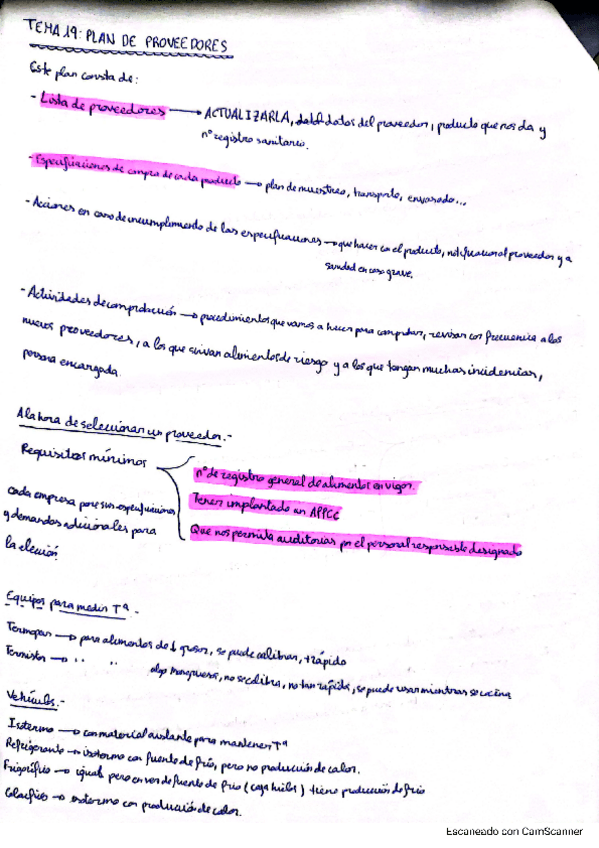 TEMA 19: PLAN DE PROVEEDORES
Este plan consta de:
- Lista de proveedores → ACTUALIZARLA, datos del proveedor, producto que nos da y
nº registro sanitario.
- Especificaciones de compra de cada producto → plan de muestreo, transporte, envasado...
- Acciones en caso de incumplimiento de las especificaciones → que hacer con el producto, notificacion al proveedor y a
sanidad en caso grave.
- Actividades de comprobación → procedimientos que vamos a hacer para comprobar, revisar con frecuencia a los
nuevos proveedores, a los que sirvan alimentos de riesgo y a los que tengan muchas incidencias,
persona encargada.
A la hora de seleccionar un proveedor.-
Requisitos mínimos
nº de registro general de alimentos en vigor.
Tener implantado un APPCC
Que nos permita auditorias por el personal responsable designado
cada empresa pone sus especificaciones
y demandas adicionales para
la elección
Equipos para medir Tª.-
Termopar → para alimentos de ↓ grosor, se puede calibrar, + rápido
Termistor → " " algo mas grueso, no se calibra, no tan rápido, se puede usar mientras se cocina
Vehículos.-
Isotermo → con material aislante para mantener Tª
Refrigerante → isotermo con fuente de frío, pero no producción de calor.
Frigorífico → igual pero en vez de fuente de frio (caja hielo) tiene producción de frio
Calorífico → isotermo con producción de calor.
Escaneado con CamScanner